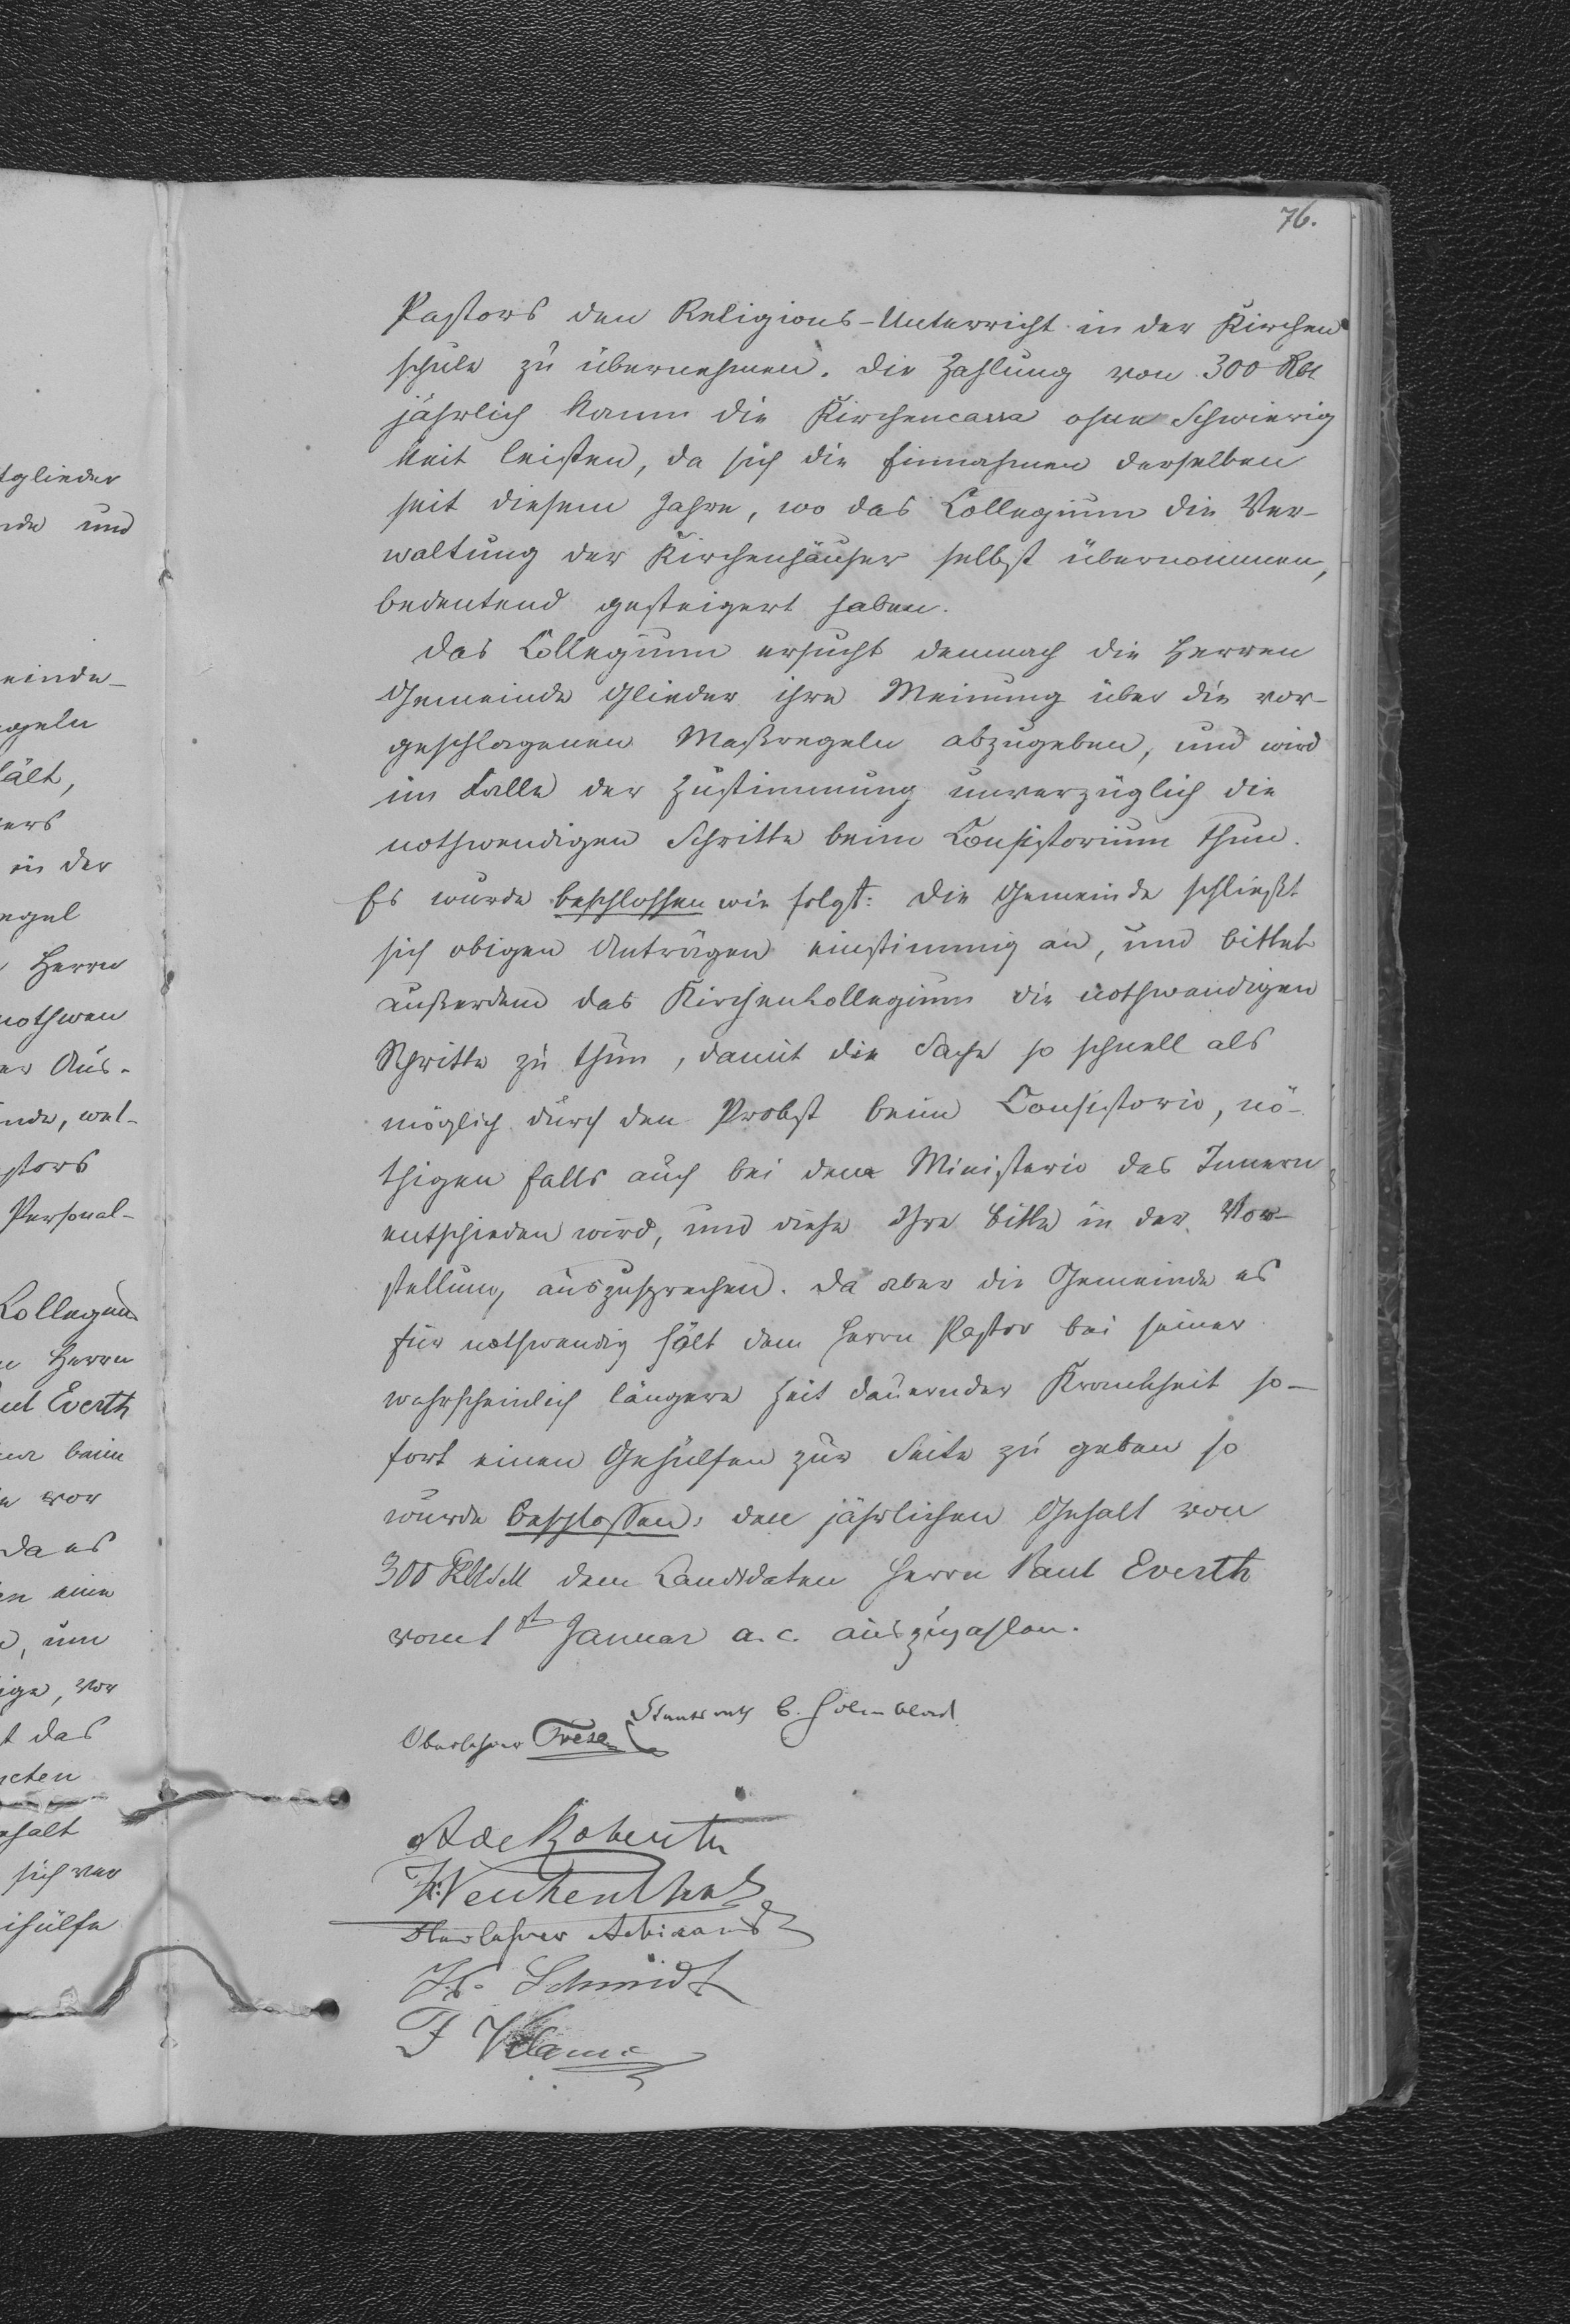 76.
Pastors den Religions-Unterricht in der Kirchen
schule zu übernehmen. Die Zahlung von 300 Rbl
jährlich kann die Kirchencassa ohne Schwierig
keit leisten, da sich die Einnahmen derselben
seit diesem Jahre, wo das Collegium die Ver-
waltung der Kirchenhäuser selbst übernommen,
bedeutend gesteigert haben.
Das Collegium ersucht demnach die Herren
Gemeinde Glieder ihre Meinung über die vor-
geschlagenen Maßregeln abzugeben, und wird
im Falle der Zustimmung unverzüglich die
nothwendigen Schritte beim Consistorium thun.
Es wurde beschlossen wie folgt: Die Gemeinde schließt
sich obigen Anträgen einstimmig an, und bittet
außerdem das Kirchenkollegium die nothwendigen
Schritte zu thun, damit die Sache so schnell als
möglich durch den Probst beim Consistorio, nö-
thigen falls auch bei dem Ministerio des Innern
entschieden wird, und diese Ihre Bitte in der Vor-
stellung auszusprechen. Da aber die Gemeinde es
für nothwendig hält dem Herrn Pastor bei seiner
wahrscheinlich längere Zeit dauernder Krankheit so-
fort einen Gehülfen zur Seite zu geben so
wurde beschlossen: den jährlichen Gehalt von
300 Rbl dem Candidaten Herrn Paul Everth
vom 1st Januar a. c. auszuzahlen.
Staatsrath
Oberlehrer Frese
Oberlehrer
Schmidt
tglieder
und
einde-
ält,
in der
egel
Herrn
nothwen
Aus-
nde, wel-
stors
Personal-
Collegen
Herrn
ul Everth
beim
vor
da es
eine
um
ige, vor
t das
cten
ehalt
sich
hülfe